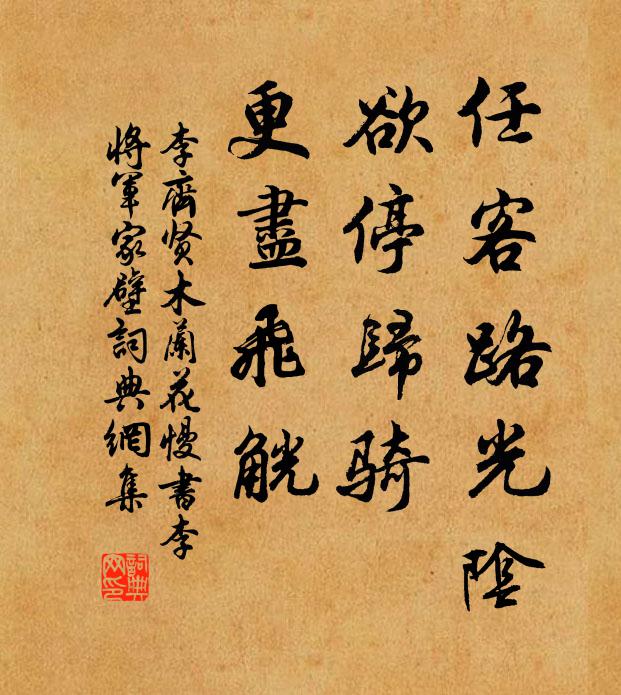 任客路光陰
欲停歸騎
更盡飛觥
李齊贤木蘭花慢書李
將軍家壁詞典網集
詞典网印